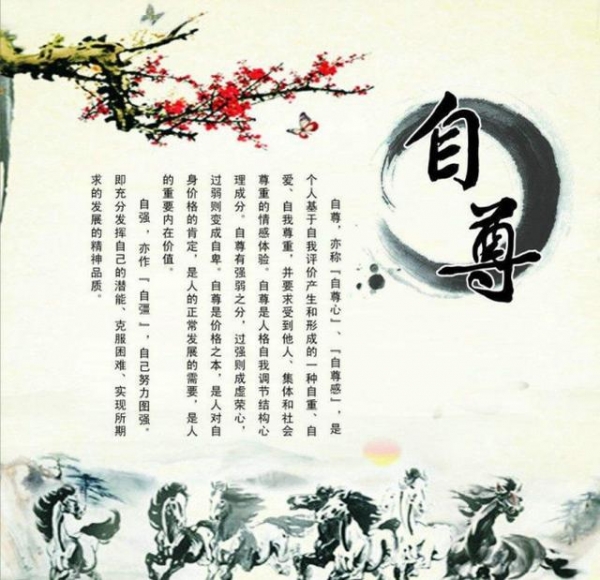 自尊
自尊，亦称『自尊心』、『自尊感』，是
个人基于自我评价产生和形成的一种自重、自
爱、自我尊重，并要求受到他人、集体和社会
尊重的情感体验。自尊是人格自我调节结构心
理成分。自尊有强弱之分，过强则成虚荣心，
过弱则变成自卑。自尊是价格之本，是人对自
身价格的肯定，是人的正常发展的需要，是人
的重要内在价值。
自强，亦作『自彊』，自己努力图强。
即充分发挥自己的潜能、克服困难、实现所期
求的发展的精神品质。